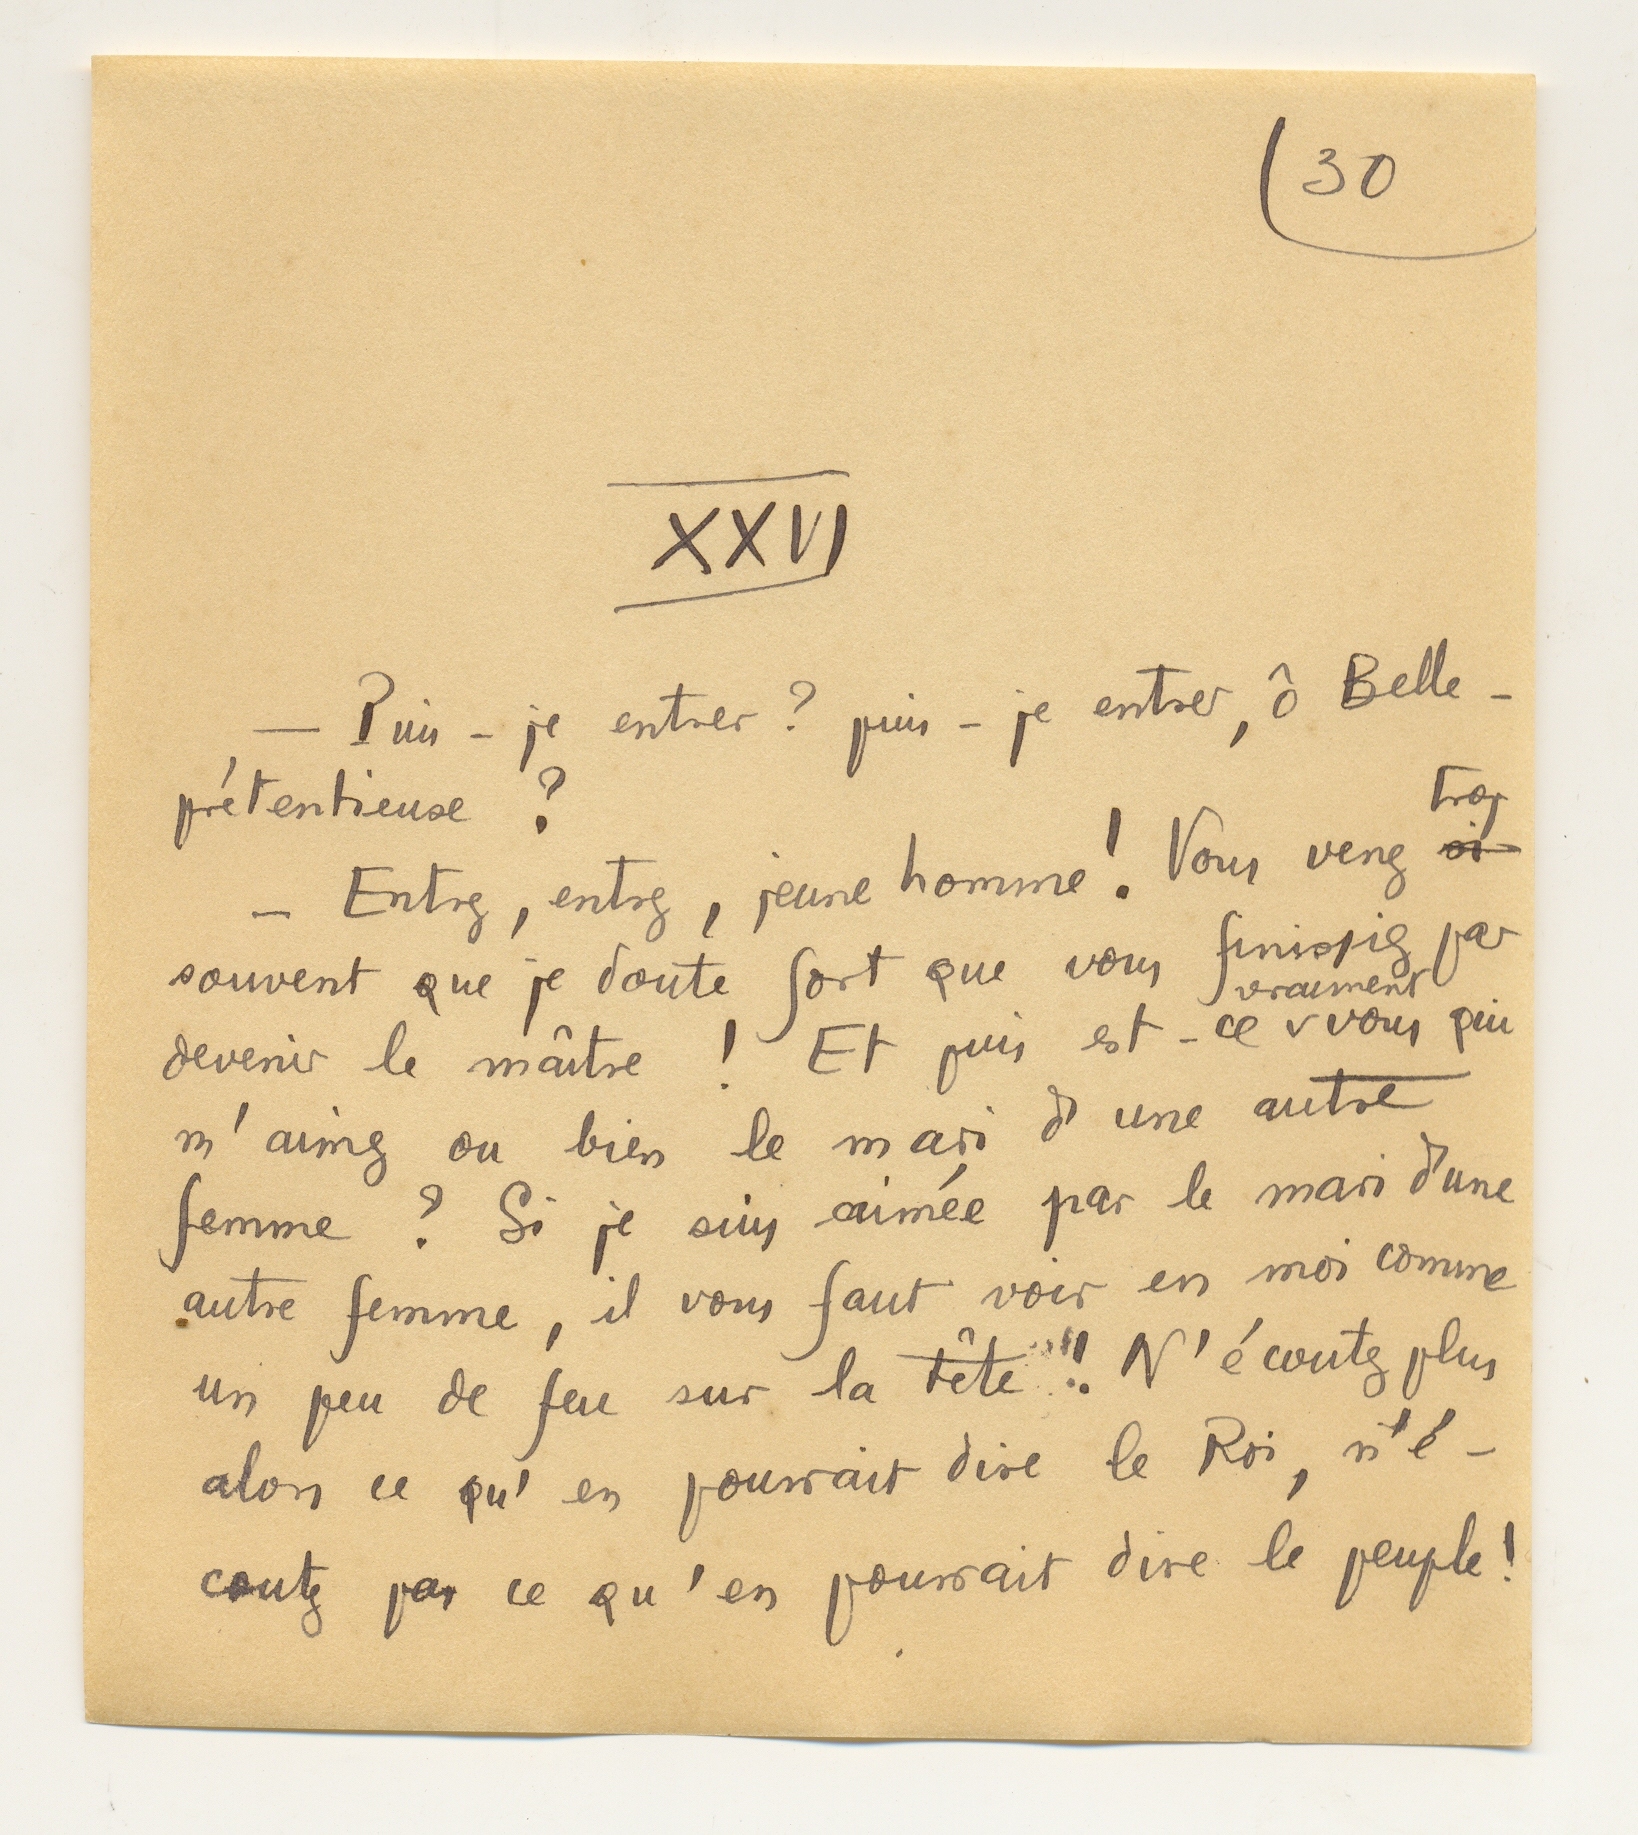 30
XXVI
— Puis-je entrer ? puis-je entrer, ô Belle-
prétentieuse ?
— Entrez, entrez, jeune homme ! Vous venez ~~si~~ trop
souvent que je doute fort que vous finissiez par
devenir le maître ! Et puis est-ce vraiment vous qui
m'aimez ou bien le mari d'une autre
femme ? Si je suis aimée par le mari d'une
autre femme, il vous faut voir en moi comme
un peu de feu sur la tête !! N'écoutez plus
alors ce qu'en pourrait dire le Roi, n'é-
coutez pas ce qu'en pourrait dire le peuple !